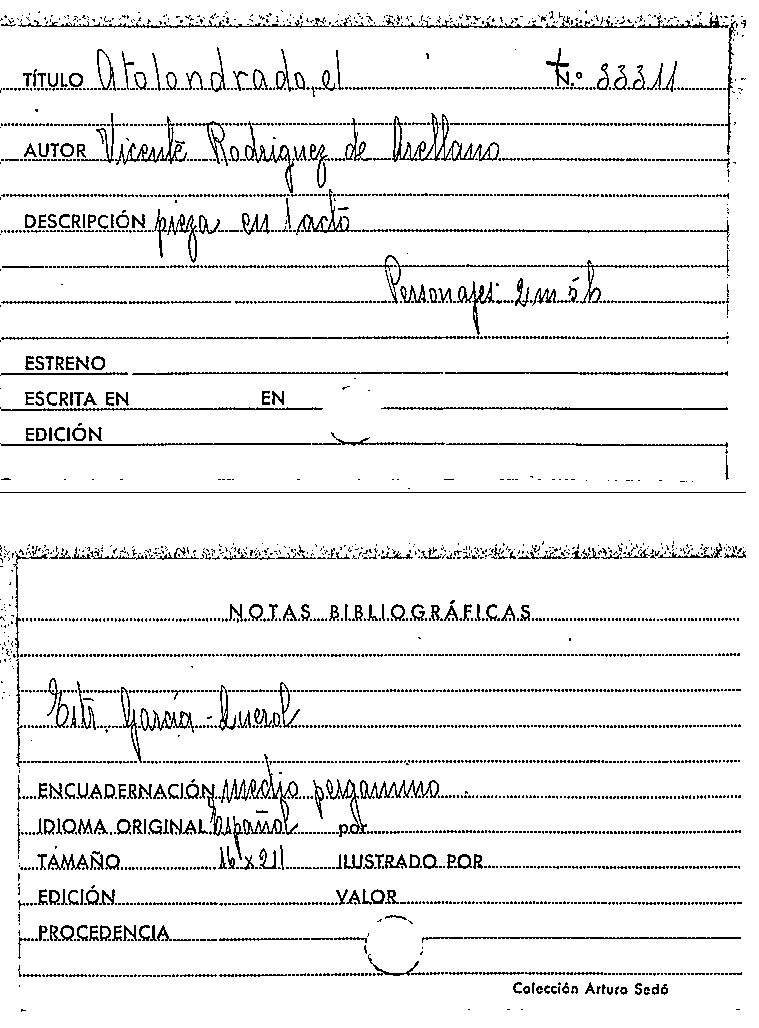 TÍTULO Atolondrado, el N.º 33311
AUTOR Vicente Rodriguez de Arellano
DESCRIPCIÓN pieza en 1 acto
Personajes: 2 m 5 h
ESTRENO
ESCRITA EN EN
EDICIÓN
NOTAS BIBLIOGRÁFICAS
Estr. García-Querol
ENCUADERNACIÓN medio pergamino
IDIOMA ORIGINAL Español por
TAMAÑO 16 x 211 ILUSTRADO POR
EDICIÓN VALOR
PROCEDENCIA
Colección Arturo Sedó